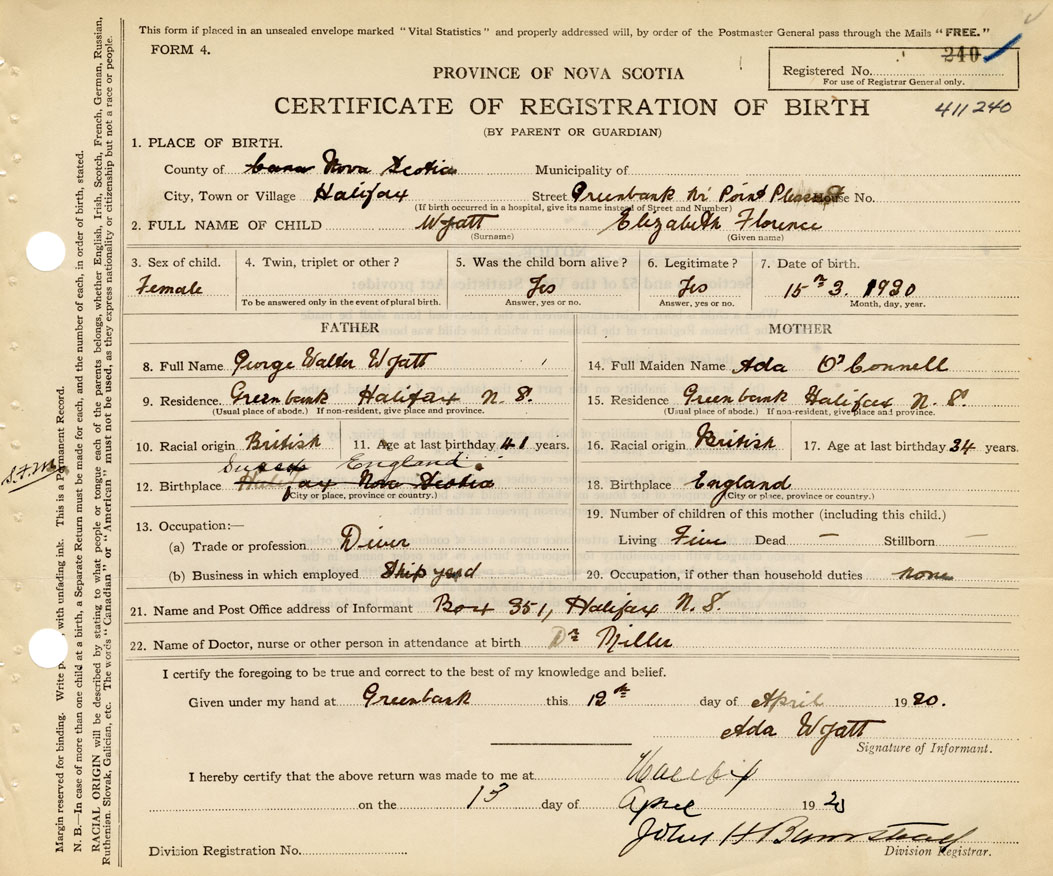 This form if placed in an unsealed envelope marked "Vital Statistics" and properly addressed will, by order of the Postmaster General pass through the Mails "FREE."
FORM 4.
240
Registered No.
For use of Registrar General only.
PROVINCE OF NOVA SCOTIA
CERTIFICATE OF REGISTRATION OF BIRTH
411240
(BY PARENT OR GUARDIAN)
1. PLACE OF BIRTH.
County of Nova Scotia Municipality of
City, Town or Village Halifax Street Greenbank Nr Point Pleasant House No.
(If birth occurred in a hospital, give its name instead of Street and Number)
2. FULL NAME OF CHILD Wyatt Elizabeth Florence
(Surname) (Given name)
3. Sex of child. 4. Twin, triplet or other ? 5. Was the child born alive ? 6. Legitimate ? 7. Date of birth.
Female Yes Yes 15 3. 1920
To be answered only in the event of plural birth. Answer, yes or no. Answer, yes or no. Month, day, year.
FATHER MOTHER
8. Full Name George Walter Wyatt 14. Full Maiden Name Ada O'Connell
9. Residence Greenbank Halifax N. S. 15. Residence Greenbank Halifax N. S.
(Usual place of abode.) If non-resident, give place and province. (Usual place of abode.) If non-resident, give place and province.
10. Racial origin British 11. Age at last birthday 41 years. 16. Racial origin British 17. Age at last birthday 34 years.
Sussex England.
12. Birthplace Halifax Nova Scotia 18. Birthplace England
(City or place, province or country.) (City or place, province or country.)
13. Occupation:— 19. Number of children of this mother (including this child.)
(a) Trade or profession Diver Living Five Dead — Stillborn —
(b) Business in which employed Ship yard 20. Occupation, if other than household duties none
21. Name and Post Office address of Informant Box 351, Halifax N. S.
22. Name of Doctor, nurse or other person in attendance at birth Dr Miller
I certify the foregoing to be true and correct to the best of my knowledge and belief.
Given under my hand at Greenbank this 12th day of April 1920.
Ada Wyatt
Signature of Informant.
I hereby certify that the above return was made to me at Halifax
on the 13 day of April 1920
Division Registration No. John H Division Registrar.
Margin reserved for binding. Write with unfading ink. This is a Permanent Record.
N. B.—In case of more than one child at a birth, a Separate Return must be made for each, and the number of each, in order of birth, stated.
RACIAL ORIGIN will be described by stating to what people or tongue each of the parents belongs, whether English, Irish, Scotch, French, German, Russian,
Ruthenian, Slovak, Galician, etc. The words "Canadian" or "American" must not be used, as they express nationality or citizenship but not a race or people.